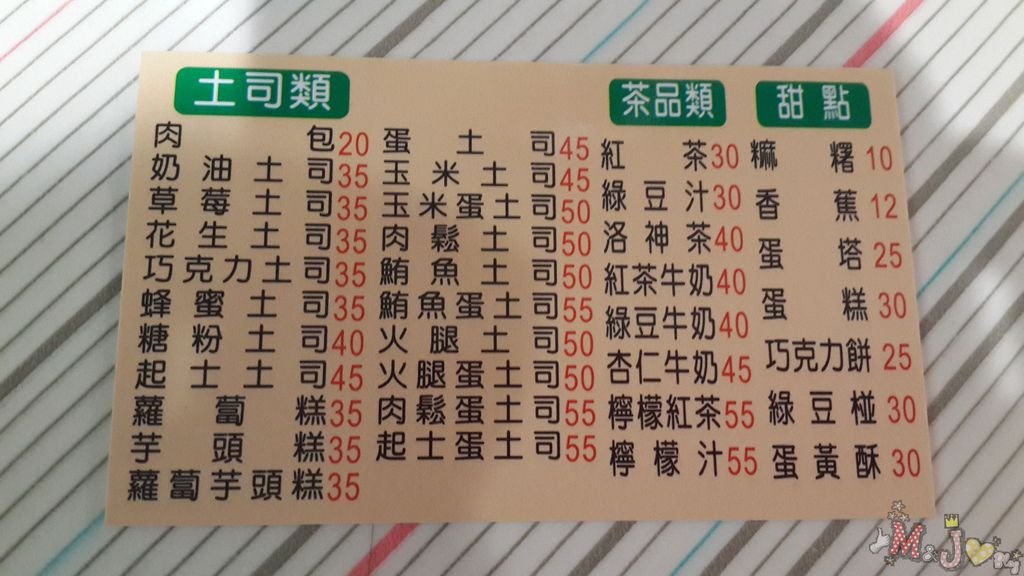 土司類
肉包20
奶油土司35
草莓土司35
花生土司35
巧克力土司35
蜂蜜土司35
糖粉土司40
起士土司45
蘿蔔糕35
芋頭糕35
蘿蔔芋頭糕35
蛋土司45
玉米土司45
玉米蛋土司50
肉鬆土司50
鮪魚土司50
鮪魚蛋土司55
火腿土司50
火腿蛋土司50
肉鬆蛋土司55
起士蛋土司55
茶品類
紅茶30
綠豆汁30
洛神茶40
紅茶牛奶40
綠豆牛奶40
杏仁牛奶45
檸檬紅茶55
檸檬汁55
甜點
糜糬10
香蕉12
蛋塔25
蛋糕30
巧克力餅25
綠豆椪30
蛋黃酥30
M&J